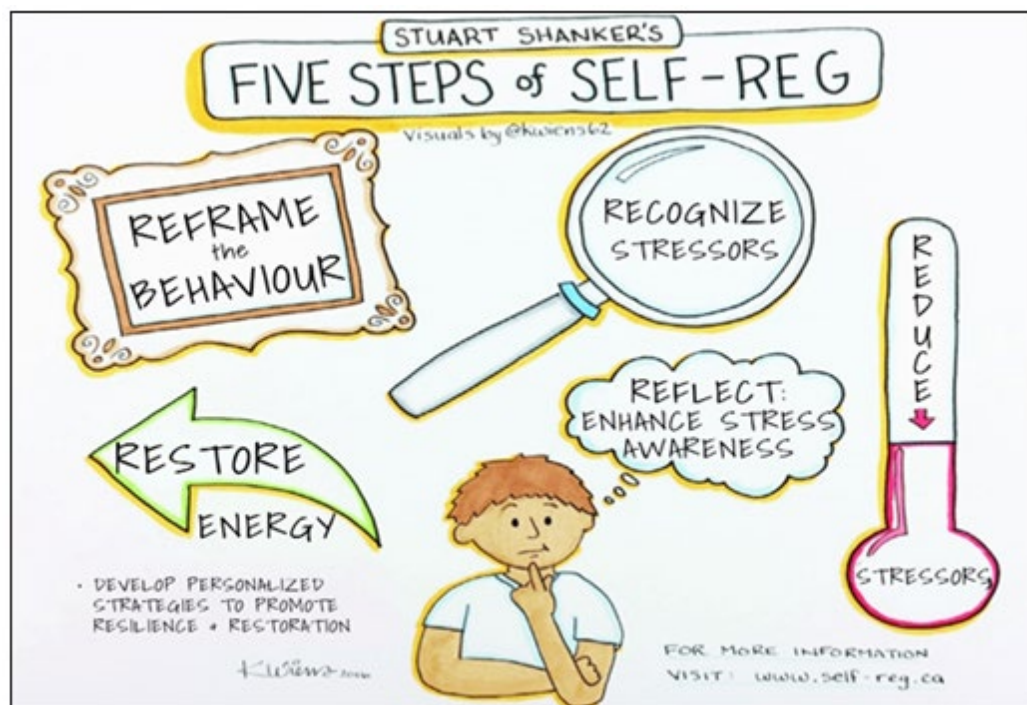 STUART SHANKER'S
FIVE STEPS of SELF-REG
Visuals by @kwiens62
REFRAME
the
BEHAVIOUR
RECOGNIZE
STRESSORS
REDUCE
STRESSORS
REFLECT:
ENHANCE STRESS
AWARENESS
RESTORE
ENERGY
• DEVELOP PERSONALIZED
STRATEGIES TO PROMOTE
RESILIENCE + RESTORATION
KWiens
FOR MORE INFORMATION
VISIT: www.self-reg.ca